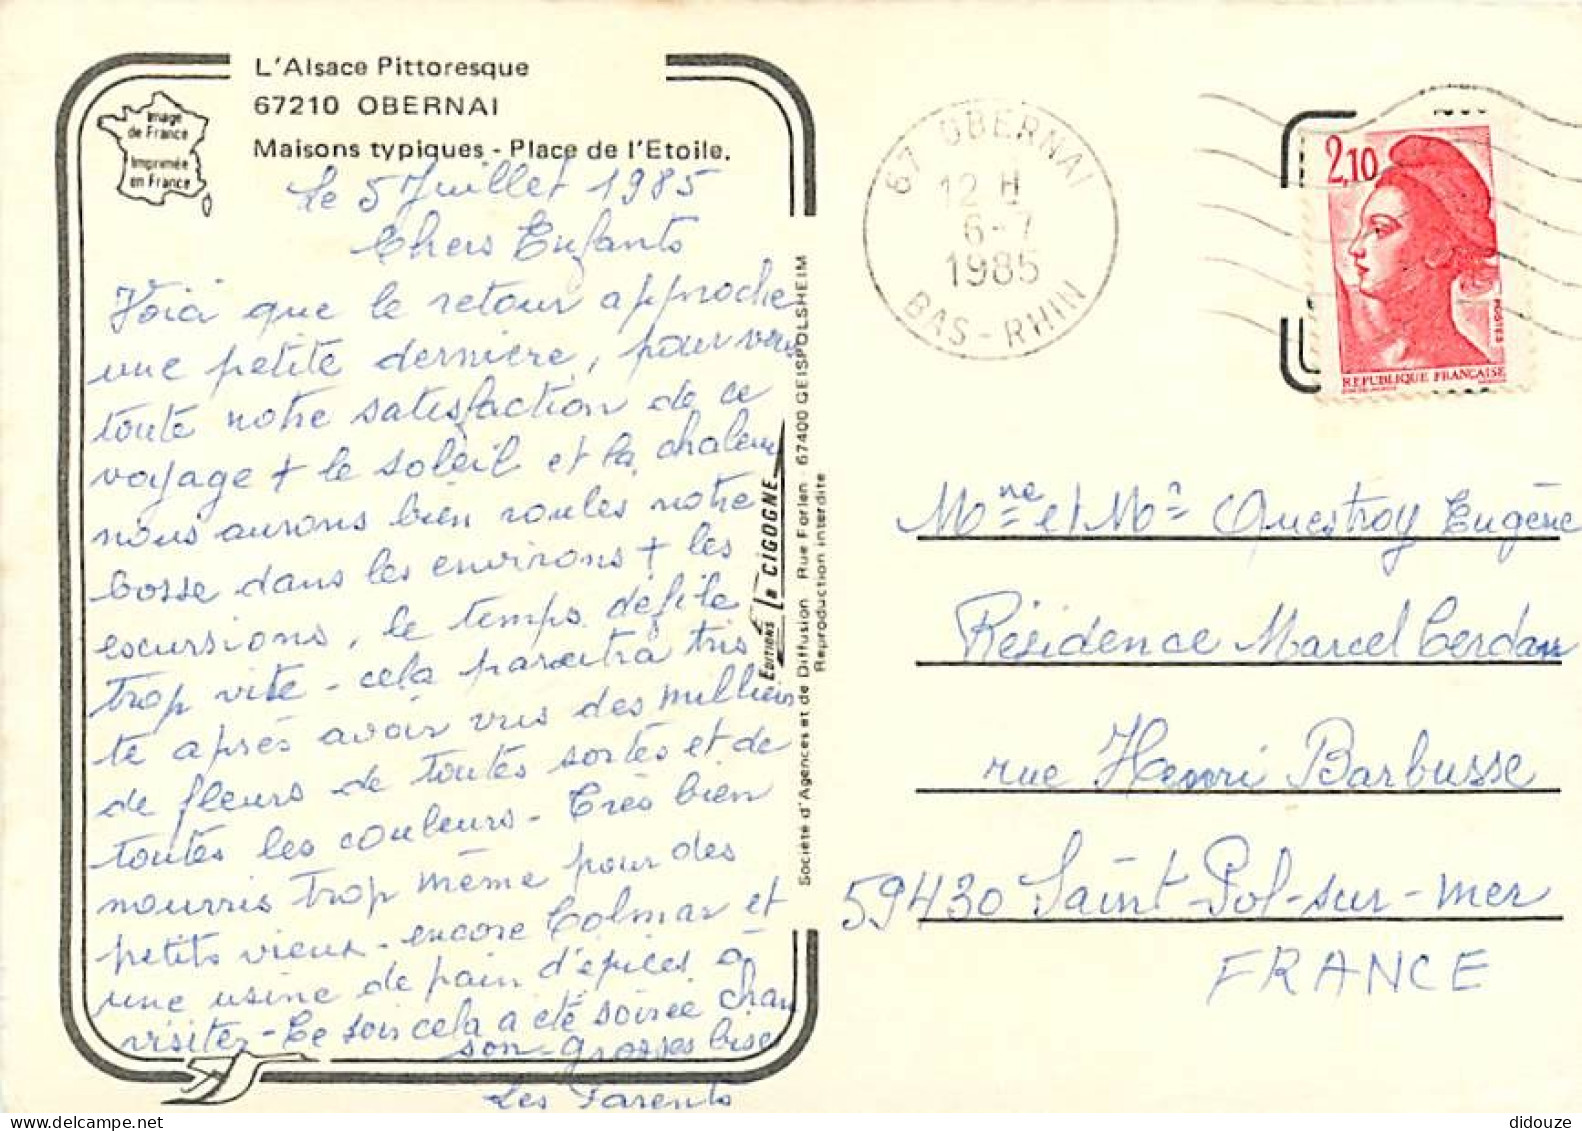 L'Alsace Pittoresque
67210 OBERNAI
Maisons typiques - Place de l'Etoile.
Image
de France
Imprimée
en France
Le 5 Juillet 1985
Chers Enfants
Voici que le retour approche
une petite dernière, pour vous
toute notre satisfaction de ce
voyage + le soleil et la chaleur
nous aurons bien roulés notre
bosse dans les environs + les
escursions, le temps défile
trop vite - cela paraitra tris
te après avoir vus des milliers
de fleurs de toutes sortes et de
toutes les couleurs - Très bien
nourris trop même pour des
petits vieux - encore Colmar et
une usine de pain d'épices à
visiter - Ce soir cela a été soirée chan
son - grosses bises
Les Parents
EDITIONS La CIGOGNE
Société d'Agences et de Diffusion Rue Forlen - 67400 GEISPOLSHEIM
Reproduction interdite
67 OBERNAI
12 H
6-7
1985
BAS-RHIN
2,10
POSTES
REPUBLIQUE FRANÇAISE
Mme et Mr Questroy Eugène
Résidence Marcel Cerdan
rue Henri Barbusse
59430 Saint-Pol-sur-mer
FRANCE
didouze